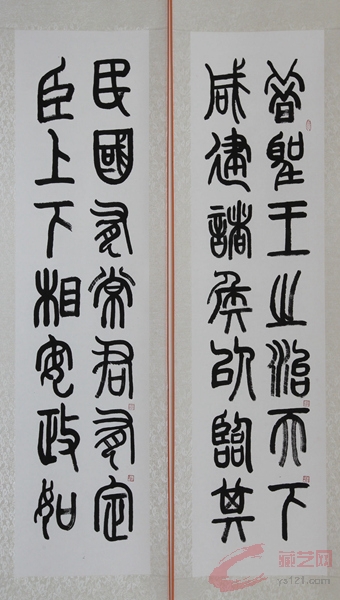 昔聖王之治天下
咸建諸侯以臨其
民國有常君有定
臣上下相安政如
藏艺网
ys121.com